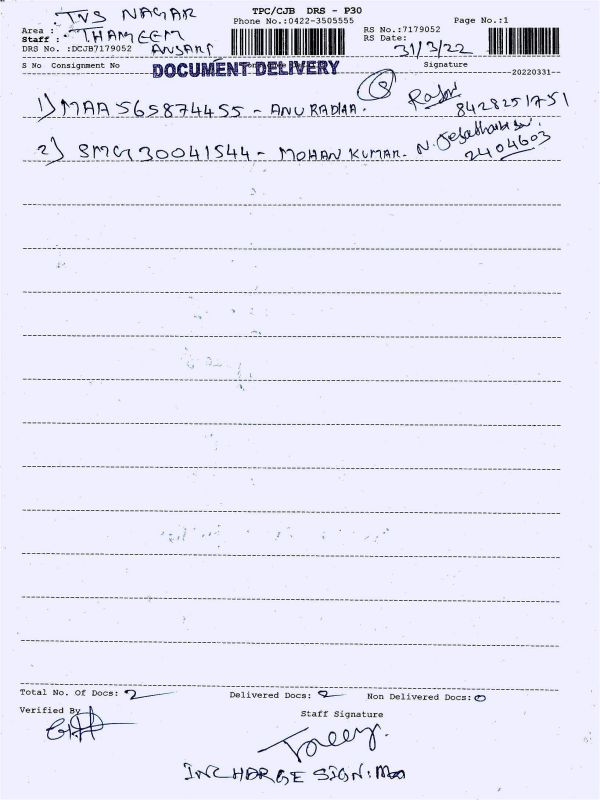 TPC/CJB DRS - P30
Area : TVS NAGAR
Phone No.:0422-3505555
Page No.:1
Staff : THAMEEM ANSARI
RS No.:7179052
DRS No. :DCJB7179052
RS Date: 31/3/22
S No Consignment No
Signature
DOCUMENT DELIVERY
—20220331—
1) MAA565874455 - ANURADHA. 8428251751
2) SMG30041544 - MOHAN KUMAR. N. 2404603
Total No. Of Docs: 2
Delivered Docs: 2
Non Delivered Docs: 0
Verified By
Staff Signature
INCHARGE SIGN: